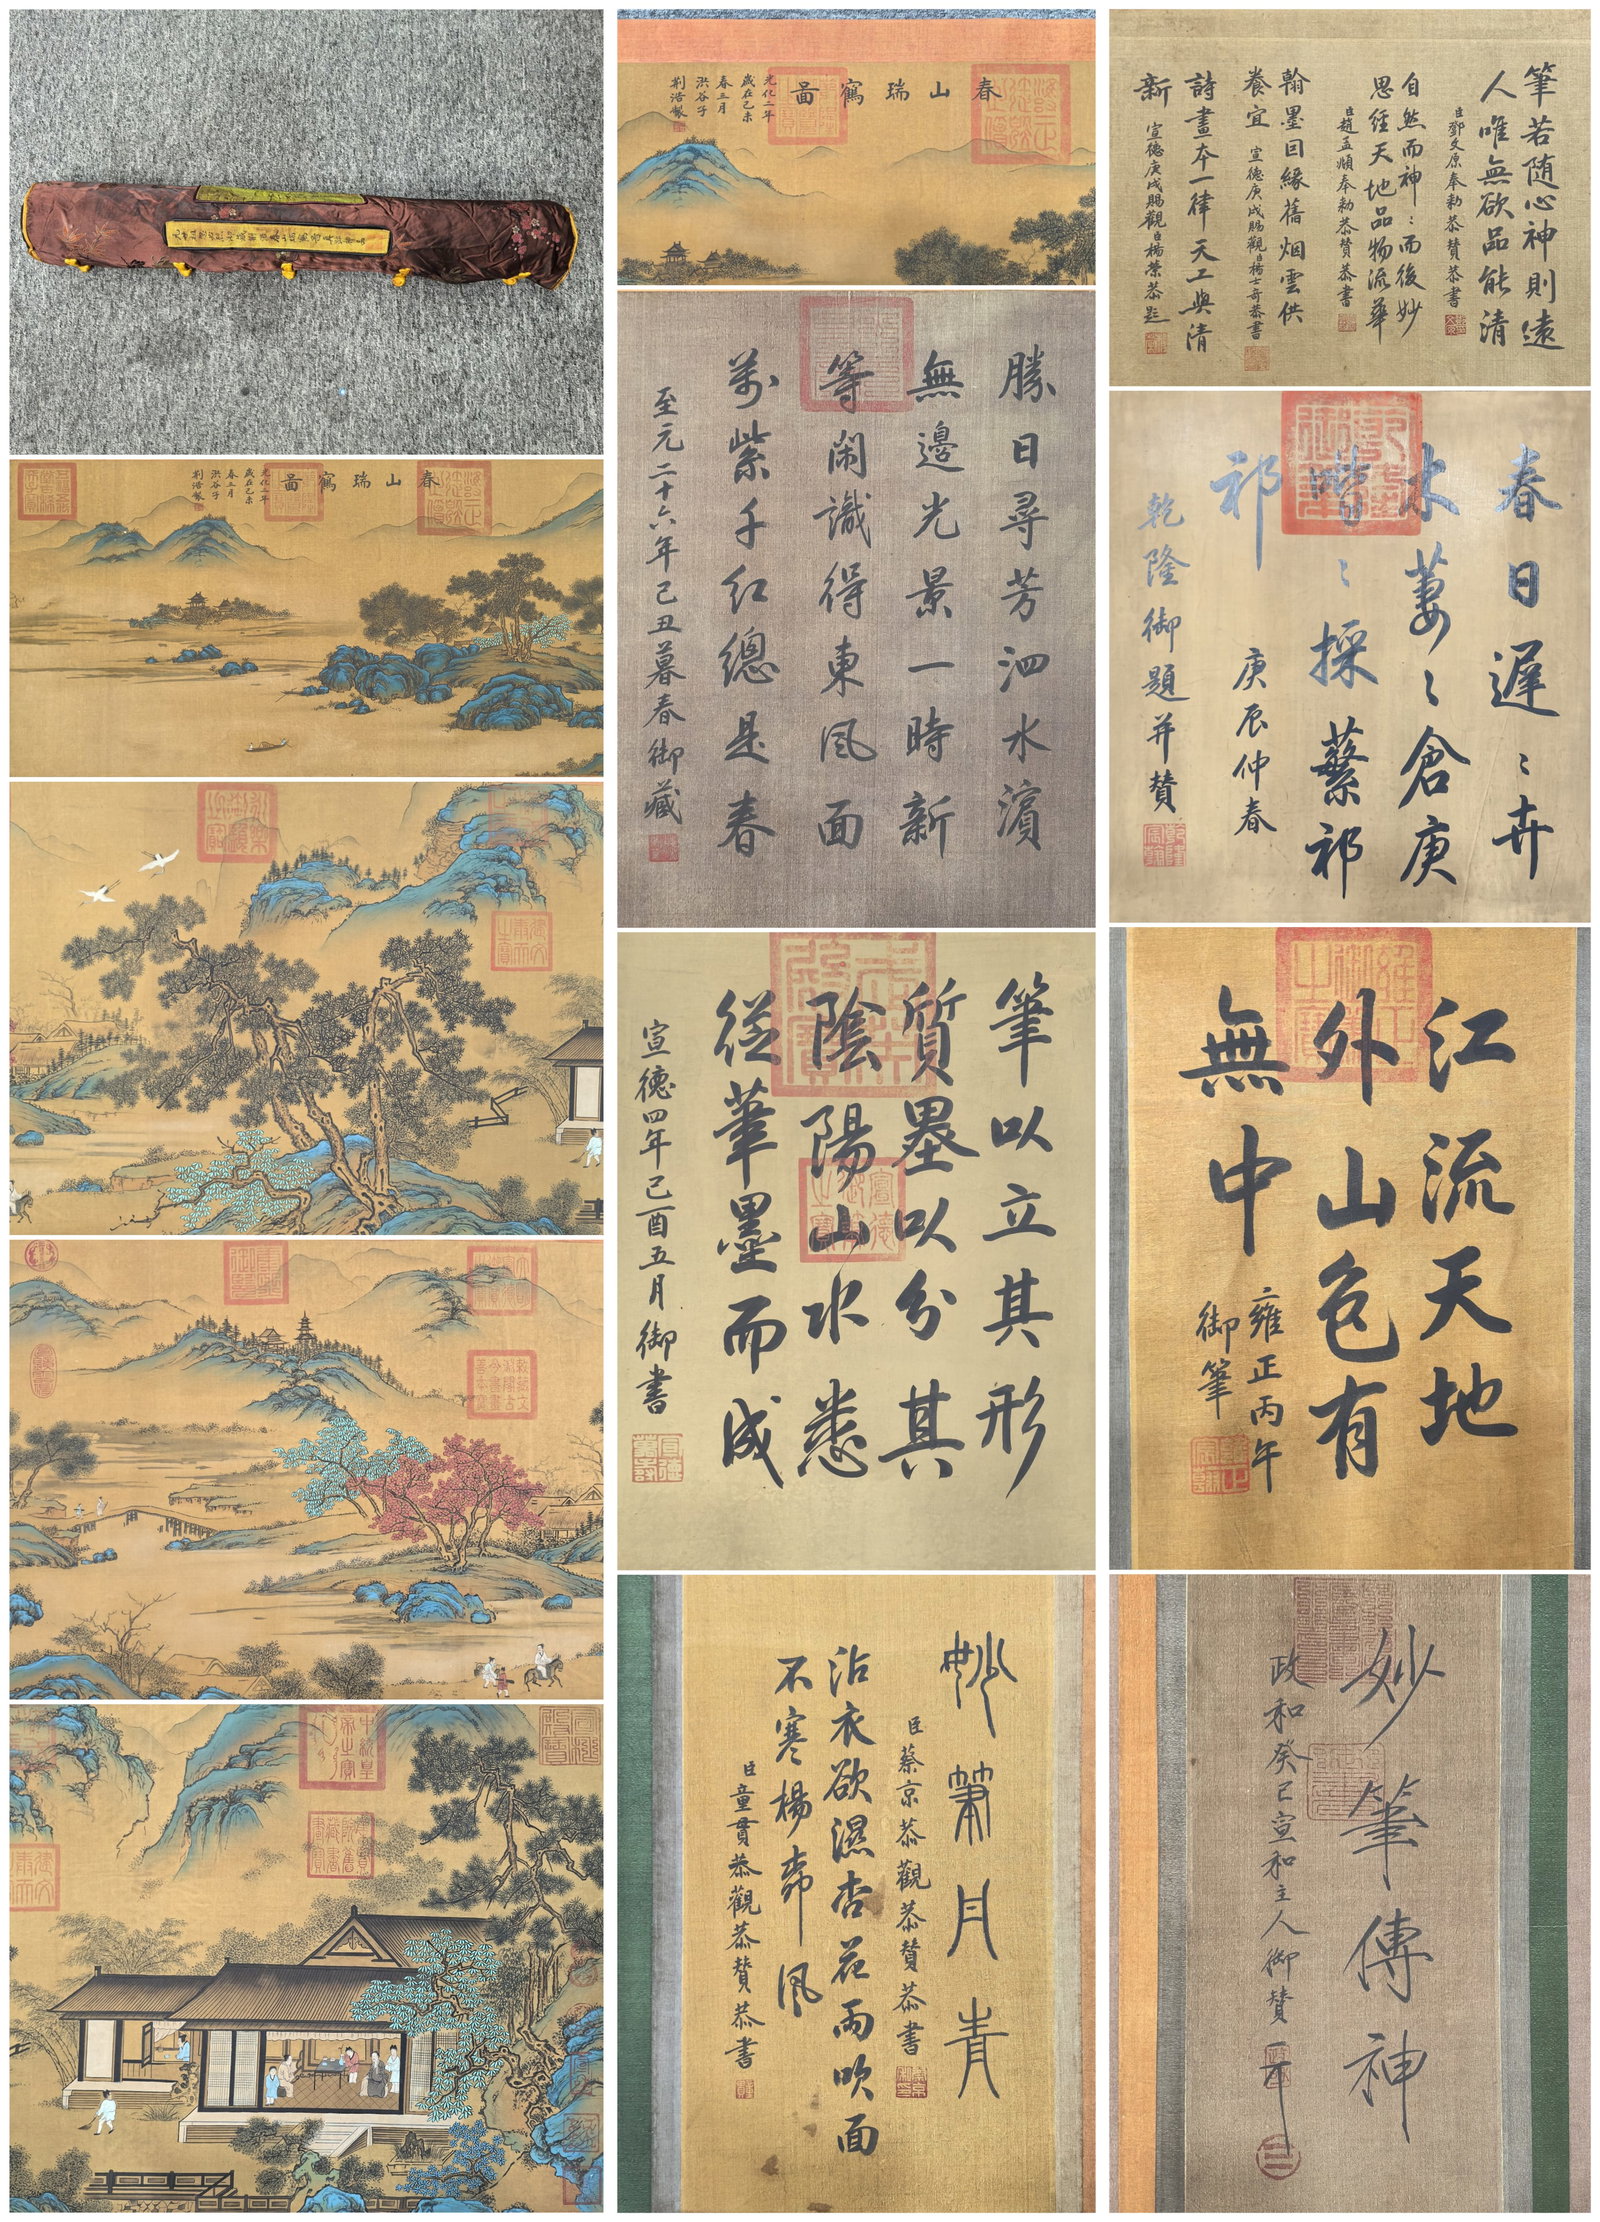 春山瑞鶴圖
光化二年
歲在己未
春三月
洪谷子
荆浩製
春山瑞鶴圖
光化二年
歲在己未
春三月
洪谷子
荆浩製
勝日尋芳泗水濱
無邊光景一時新
等閑識得東風面
萬紫千紅總是春
至元二十六年己丑暮春御藏
筆以立其形
質墨以分其
陰陽山水悉
從筆墨而成
宣德四年己酉五月御書
妙筆丹青
臣蔡京恭觀恭贊恭書
沾衣欲濕杏花雨吹面
不寒楊柳風
臣童貫恭觀恭贊恭書
筆若随心神則遠
人唯無欲品能清
臣鄧文原奉勅恭贊恭書
自然而神〻而後妙
思經天地品物流華
臣趙孟頫奉勅恭贊恭書
翰墨因緣舊烟雲供
養宜
宣德庚戌賜觀臣楊士奇恭書
詩畫本一律天工與清
新
宣德庚戌賜觀臣楊榮恭題
春日遲〻卉
木萋〻倉庚
喈〻採蘩祁
祁
庚辰仲春
乾隆御題并贊
江流天地
外山色有
無中
雍正丙午
御筆
妙筆傳神
政和癸巳宣和主人御贊